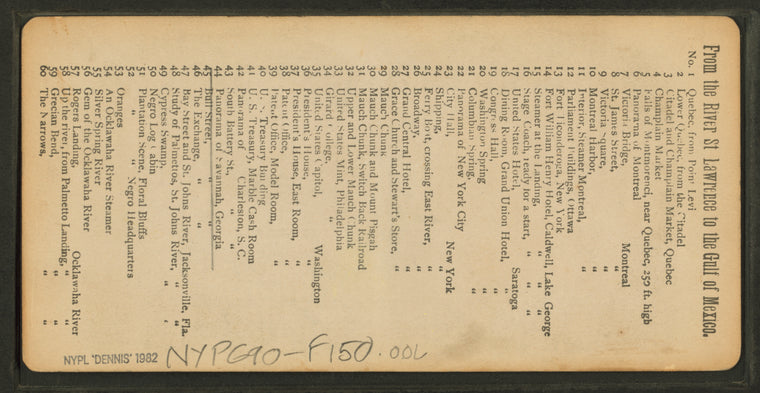 From the River St Lawrence to the Gulf of Mexico.
No. 1 Quebec, from Point Levi
2 Lower Quebec, from the Citadel
3 Citadel and Champlain Market, Quebec
4 Champlain Market "
5 Falls of Montmorenci, near Quebec, 250 ft. high
6 Panorama of Montreal
7 Victoria Bridge, Montreal
8 St. James Street, "
9 Victoria Square, "
10 Montreal Harbor, "
11 Interior, Steamer Montreal, "
12 Parliament Buildings, Ottawa
13 Fort Ticonderoga, New York
14 Fort William Henry Hotel, Caldwell, Lake George
15 Steamer at the Landing, " "
16 Stage Coach, ready for a start, " "
17 United States Hotel, Saratoga
18 Dining Room, Grand Union Hotel, "
19 Congress Hall, "
20 Washington Spring "
21 Columbian Spring, "
22 Panorama of New York City
23 City Hall, New York
24 Shipping, "
25 Ferry Boat, crossing East River, "
26 Broadway, "
27 Grand Central Hotel, "
28 Grace Church and Stewart's Store, "
29 Mauch Chunk
30 Mauch Chunk and Mount Pisgah
31 Mauch Chunk, Switch Back Railroad
32 Upper and Lower Mauch Chunk
33 United States Mint, Philadelphia
34 Girard College, "
35 United States Capitol, Washington
36 President's House, "
37 President's House, East Room, "
38 Patent Office, "
39 Patent Office, Model Room, "
40 U. S. Treasury Building "
41 U. S. Treasury, Marble Cash Room
42 Panorama of Charleston, S. C.
43 South Battery St., " "
44 Panorama of Savannah, Georgia
45 Bull Street, " "
46 The Exchange, " "
47 Bay Street and St. Johns River, Jacksonville, Fla.
48 Study of Palmettos, St. Johns River, " "
49 Cypress Swamp, " "
50 Negro Log Cabin
51 Plantation Scene, Floral Bluffs
52 " " Negro Headquarters
53 Oranges
54 An Ocklawaha River Steamer
55 Silver Spring River
56 Gem of the Ocklawaha River
57 Rogers Landing, Ocklawaha River
58 Up the river, from Palmetto Landing, " "
59 Grecian Bend, " "
60 The Narrows, " "
NYPL "DENNIS" 1982
NYPG90-F150.00L